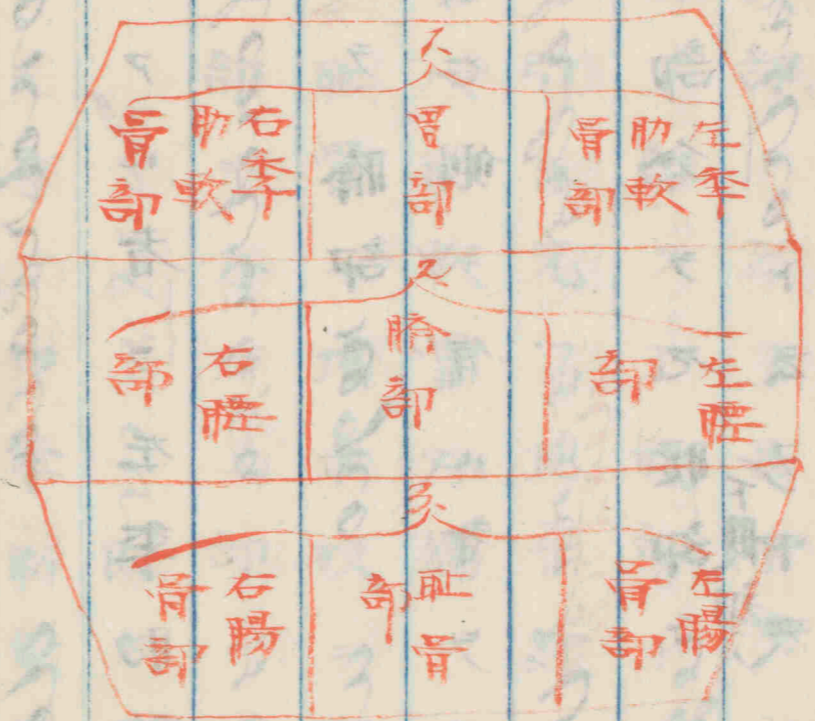 左季
肋軟
骨部
胃部
右季
肋軟
骨部
左腰
部
臍部
右腰
部
左腸
骨部
耻骨
部
右腸
骨部